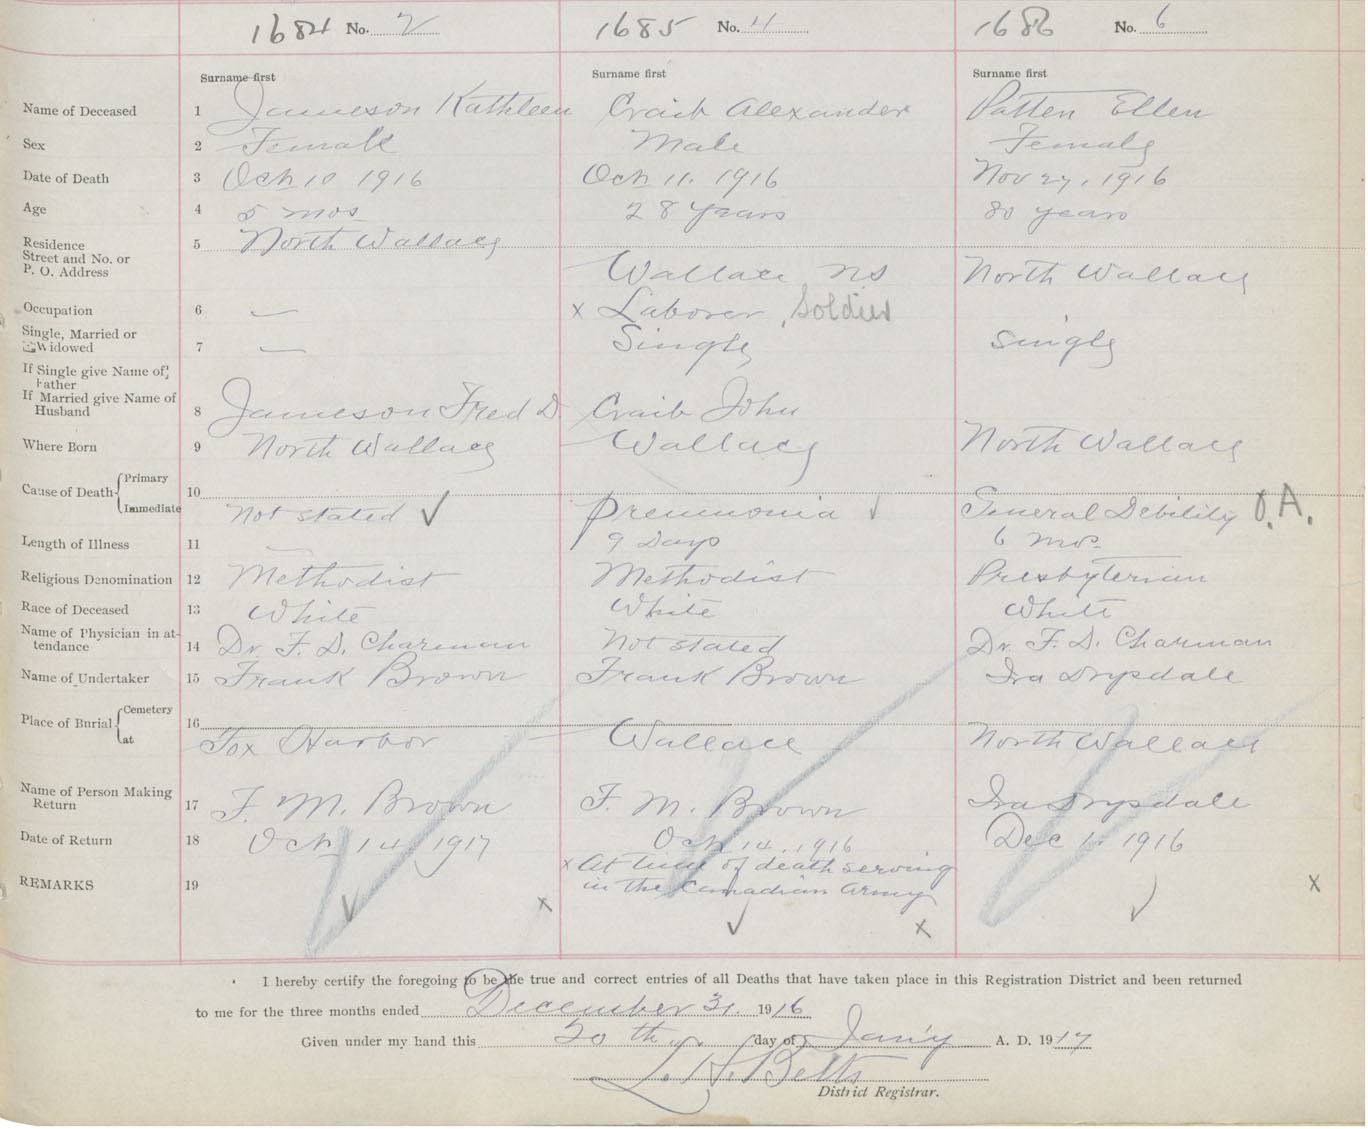 1684 No. 2 1685 No. 4 1686 No. 6
Surname first Surname first Surname first
Name of Deceased 1 Jameson Kathleen Craib Alexander Patten Ellen
Sex 2 Female Male Female
Date of Death 3 Oct 10 1916 Oct 11. 1916 Nov 27, 1916
Age 4 5 mos 28 years 80 years
Residence 5 North Wallace
Street and No. or
P. O. Address Wallace NS North Wallace
Occupation 6 — x Laborer, Soldier
Single, Married or
Widowed 7 — Single Single
If Single give Name of
Father
If Married give Name of
Husband 8 Jameson Fred D. Craib John
Where Born 9 North Wallace Wallace North Wallace
Cause of Death { Primary 10
Immediate Not stated ✓ Pneumonia ✓ General Debility O.A.
Length of Illness 11 — 9 Days 6 mos.
Religious Denomination 12 Methodist Methodist Presbyterian
Race of Deceased 13 White White White
Name of Physician in at-
tendance 14 Dr. F. D. Charman Not stated Dr. F. D. Charman
Name of Undertaker 15 Frank Brown Frank Brown Ira Drysdale
Place of Burial { Cemetery 16
at Fox Harbor Wallace North Wallace
Name of Person Making
Return 17 F. M. Brown F. M. Brown Ira Drysdale
Date of Return 18 Oct 14, 1917 Oct 14. 1916 Dec 1. 1916
REMARKS 19 x At time of death serving
in the Canadian Army
✓ x ✓ x ✓ x
I hereby certify the foregoing to be the true and correct entries of all Deaths that have taken place in this Registration District and been returned
to me for the three months ended December 31. 1916
Given under my hand this 20 th day of Jan'y A. D. 1917
L. H. Betts
District Registrar.